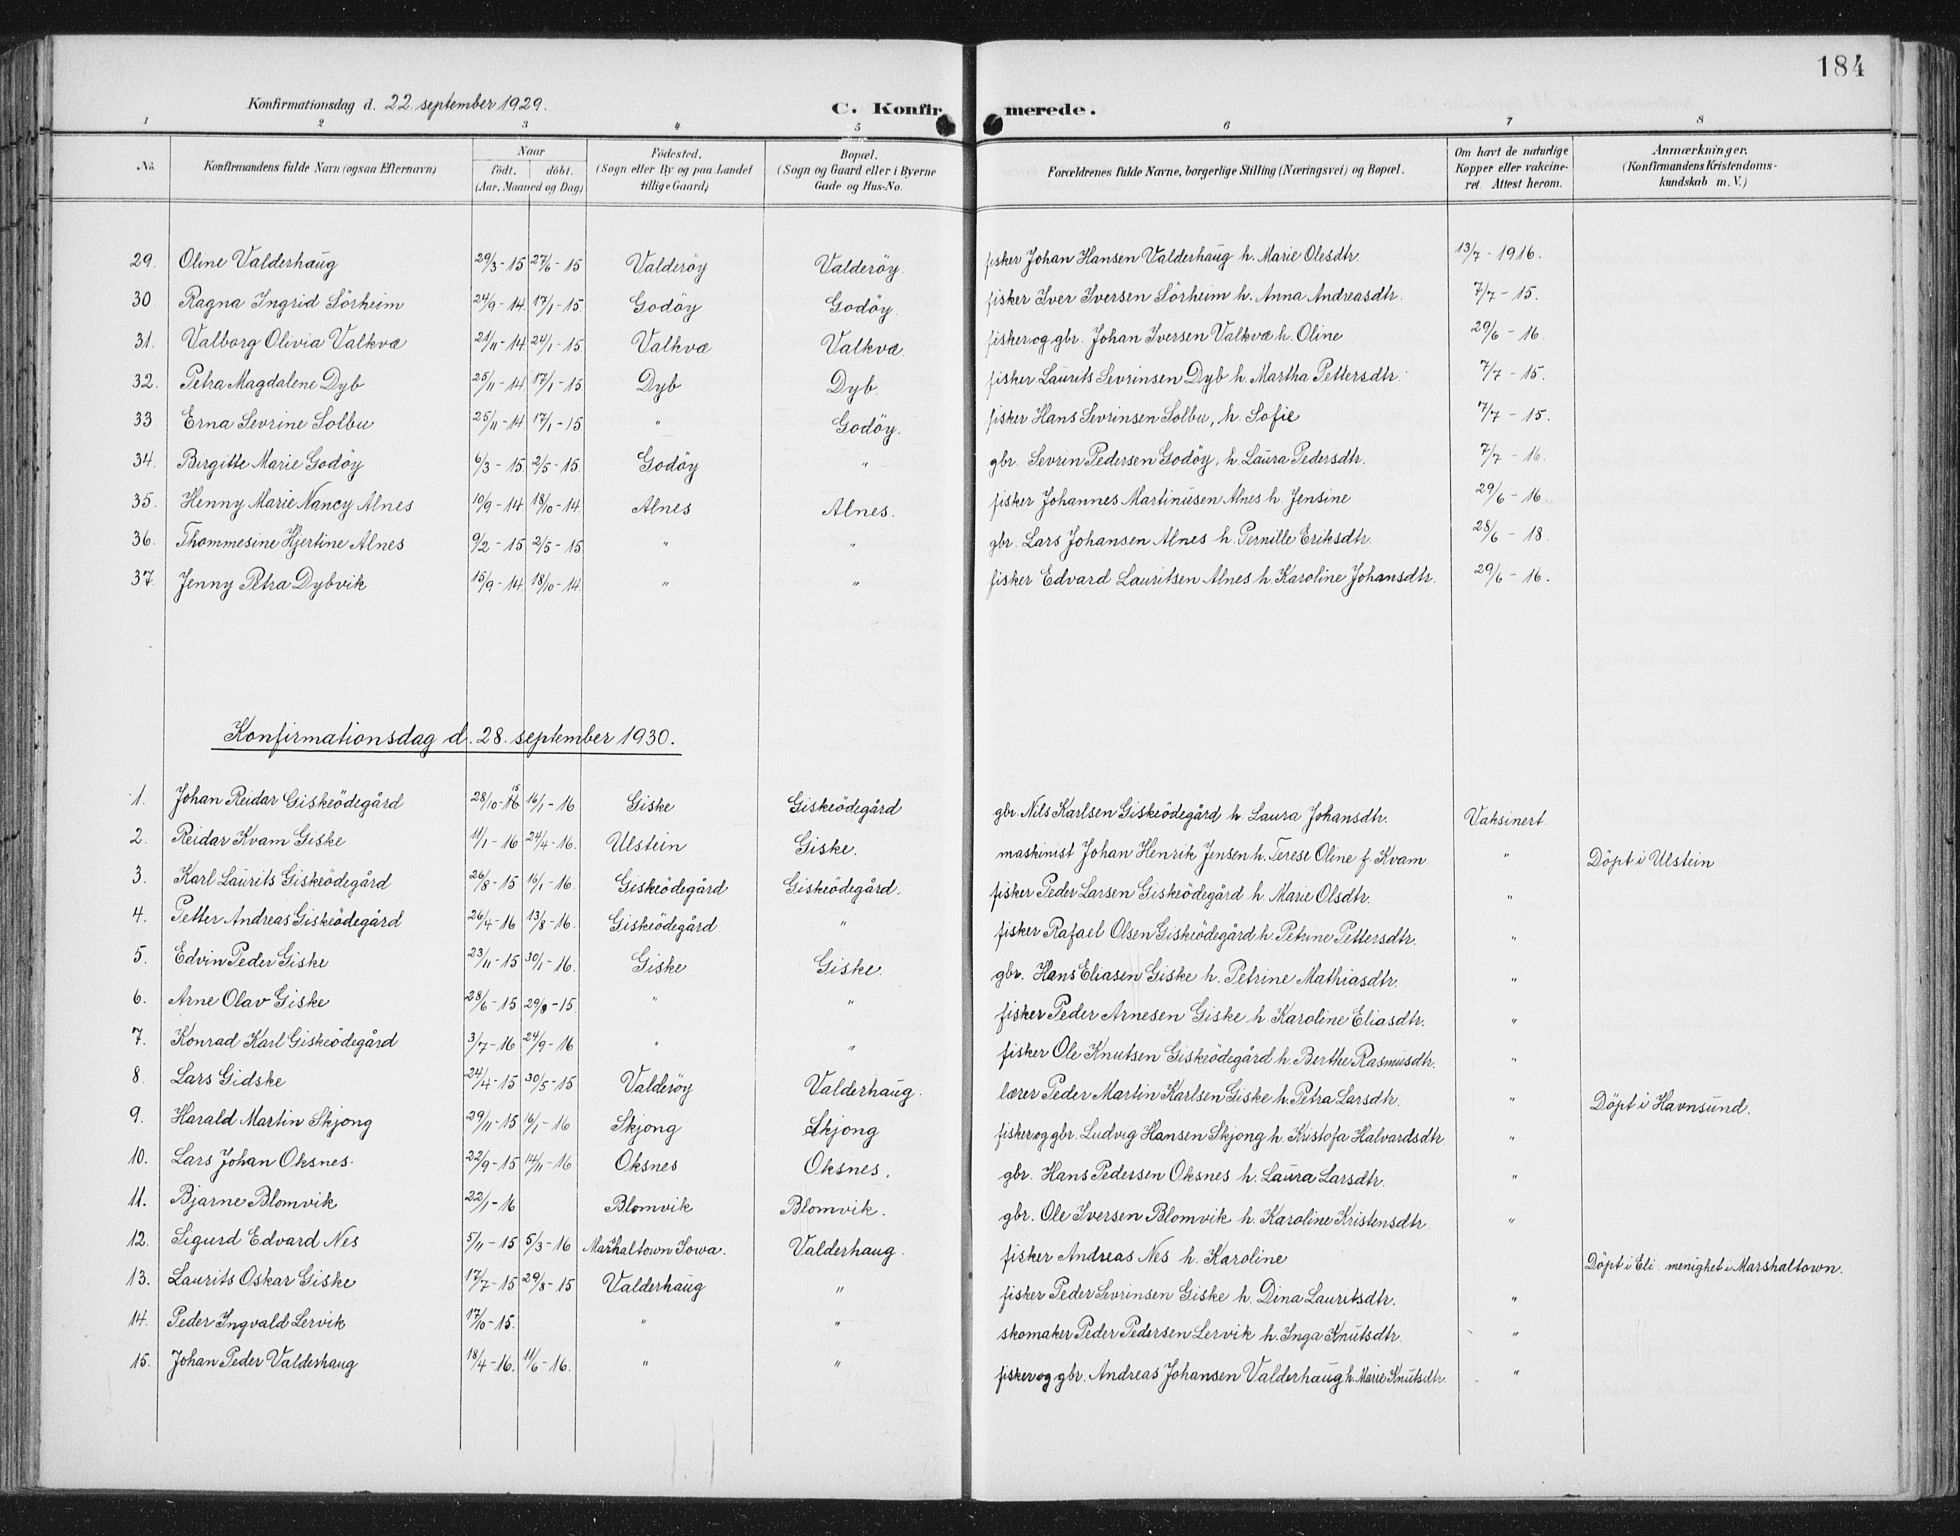 184
Konfirmationsdag d. 22. september 1929.
C. Konfirmerede.
1 2 3 4 5 6 7 8
No. Konfirmandens fulde Navn (ogsaa Efternavn) Naar födt. döbt. (Aar, Maaned og Dag) Födested. (Sogn eller By og paa Landet tillige Gaard) Bopæl. (Sogn og Gaard eller i Byerne Gade og Hus-No. Forældrenes fulde Navne, borgerlige Stilling (Næringsvei) og Bopæl. Om havt de naturlige Kopper eller vakcineret. Attest herom. Anmærkninger. (Konfirmandens Kristendomskundskab m. V.)
29. Oline Valderhaug 29/3-15 27/6-15 Valderöy Valderöy. fisker Johan Hansen Valderhaug h. Marie Olesdtr. 13/7-1916.
30. Ragna Ingrid Sörheim 24/9-14. 17/1-15 Godöy Godöy. fisker Iver Iversen Sörheim h. Anna Andreasdtr. 7/7-15.
31. Valborg Olivia Valkvæ 21/11-14. 24/1-15 Valkvæ Valkvæ. fisker og gbr. Johan Iversen Valkvæ h. Oline 29/6-16.
32. Petra Magdalene Dyb 25/11-14 17/1-15 Dyb Dyb. fisker Laurits Sevrinsen Dyb h. Martha Pettersdtr. 7/7-15.
33. Erna Sevrine Solbu 25/11-14 17/1-15 " Godöy. fisker Hans Sevrinsen Solbu, h. Sofie 7/7-15.
34. Birgitte Marie Godöy 6/3-15. 2/5-15. Godöy " gbr. Sevrin Pedersen Godöy, h. Laura Pedersdtr. 7/7-16.
35. Henny Marie Nancy Alnes 10/9-14 18/10-14. Alnes Alnes. fisker Johannes Martinusen Alnes h. Jensine 29/6-16.
36. Thommesine Hjertine Alnes 9/2-15. 2/5-15 " " gbr. Lars Johansen Alnes h. Pernille Eriksdtr. 28/6-18.
37. Jenny Petra Dybvik 15/9-14. 18/10-14. " " fisker Edvard Lauritsen Alnes h. Karoline Johansdtr. 29/6-16.
Konfirmationsdag d. 28. september 1930.
1. Johan Reidar Giskeödegård 28/10-15 16/1-16 Giske Giskeödegård gbr. Nils Karlsen Giskeödegård h. Laura Johansdtr. Vaksinert.
2. Reidar Kvam Giske 11/1-16 24/4-16. Ulstein Giske. maskinist Johan Henrik Jensen h. Terese Oline f. Kvam " Döpt i Ulstein
3. Karl Laurits Giskeödegård 26/8-15 16/1-16. Giskeödegård Giskeödegård. fisker Peder Larsen Giskeödegård h. Marie Olsdtr. "
4. Petter Andreas Giskeödegård 26/4-16 13/8-16. Giskeödegård " fisker Rafael Olsen Giskeödegård h. Petrine Pettersdtr. "
5. Edvin Peder Giske 23/11-15 30/1-16. Giske Giske. gbr. Hans Eliasen Giske h. Petrine Mathiasdtr. "
6. Arne Olav Giske 28/6-15 29/8-15. " " fisker Peder Arnesen Giske h. Karoline Eliasdtr. "
7. Konrad Karl Giskeödegård 3/7-16 24/9-16 " " fisker Ole Knutsen Giskeödegård h. Berthe Rasmusdtr. "
8. Lars Gidske 24/4-15 30/5-15 Valderöy Valderhaug. lærer Peder Martin Karlsen Giske h. Petra Larsdtr. " Döpt i Havnsund.
9. Harald Martin Skjong 29/11-15 16/1-16 Skjong Skjong fisker og gbr. Ludvig Hansen Skjong h. Kristofa Halvardsdtr. "
10. Lars Johan Oksnes. 22/9-15 14/11-16 Oksnes Oksnes. gbr. Hans Pedersen Oksnes h. Laura Larsdtr. "
11. Bjarne Blomvik 22/1-16 Blomvik Blomvik. gbr. Ole Iversen Blomvik h. Karoline Kristensdtr. "
12. Sigurd Edvard Nes 5/11-15 5/3-16 Marshaltown Iowa. Valderhaug. fisker Andreas Nes h. Karoline Döpt i Eli. menighet i Marshaltown.
13. Laurits Oskar Giske 17/7-15 29/8-15 Valderhaug " fisker Peder Sevrinsen Giske h. Dina Lauritsdtr. "
14. Peder Ingvald Lervik 17/10-15. " " skomaker Peder Pedersen Lervik h. Inga Knutsdtr. "
15. Johan Peder Valderhaug 18/4-16. 11/6-16. " " fisker og gbr. Andreas Johansen Valderhaug h. Marie Knutsdtr. "